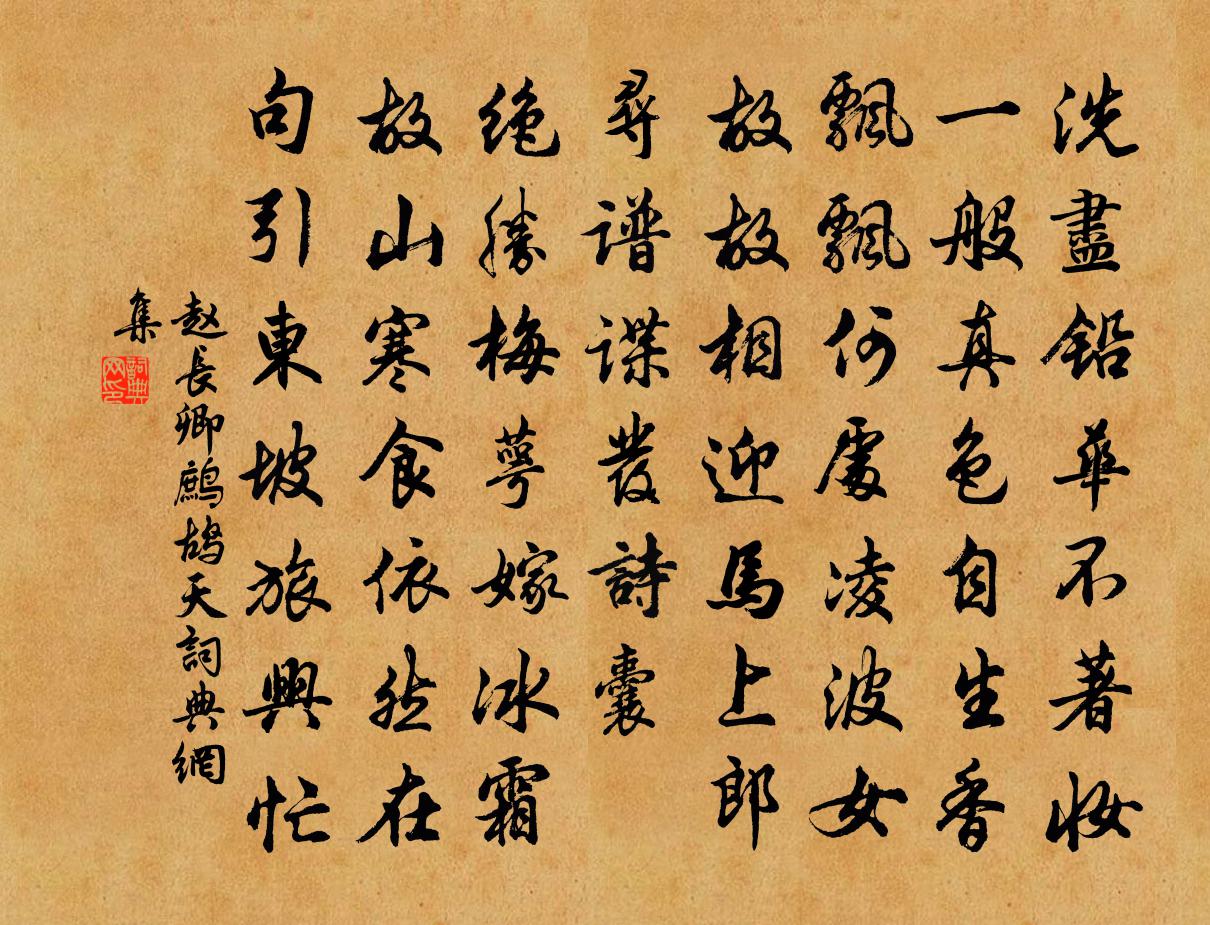 洗盡鉛華不著妝
一般真色自生香
飄飄何處凌波女
故故相迎馬上郎
尋譜諜發詩囊
絶勝梅萼嫁冰霜
故山寒食依然在
句引東坡旅興忙
赵長卿鷓鴣天詞典網
集
詞典网印